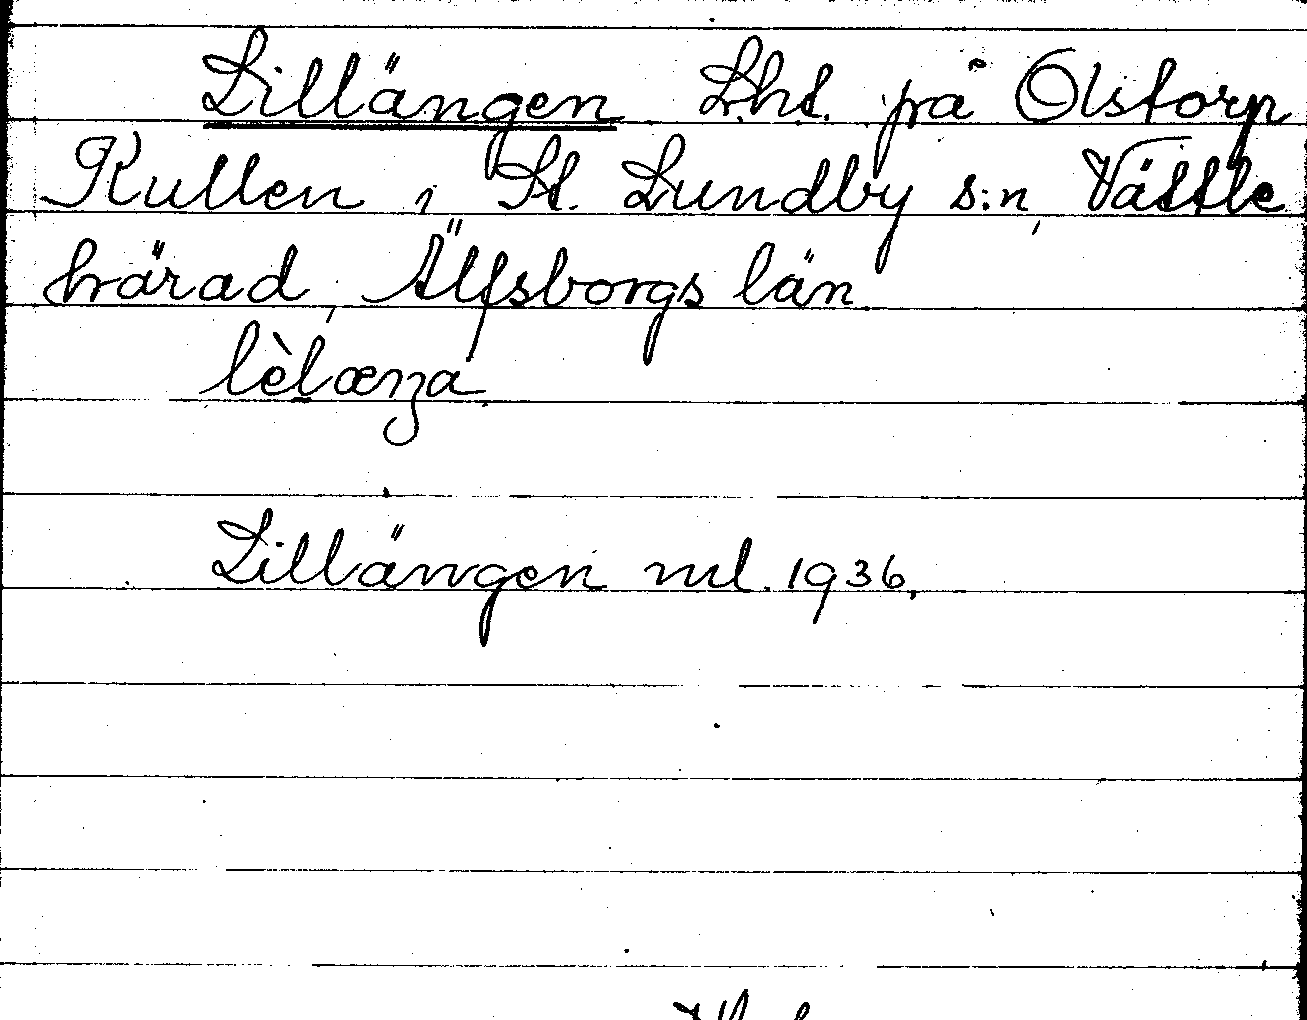 Lillängen Lht. på Olstorp
Kullen i St. Lundby s:n, Vättle
härad, Älfsborgs län
lèlænȝa
Lillängen ml. 1936.